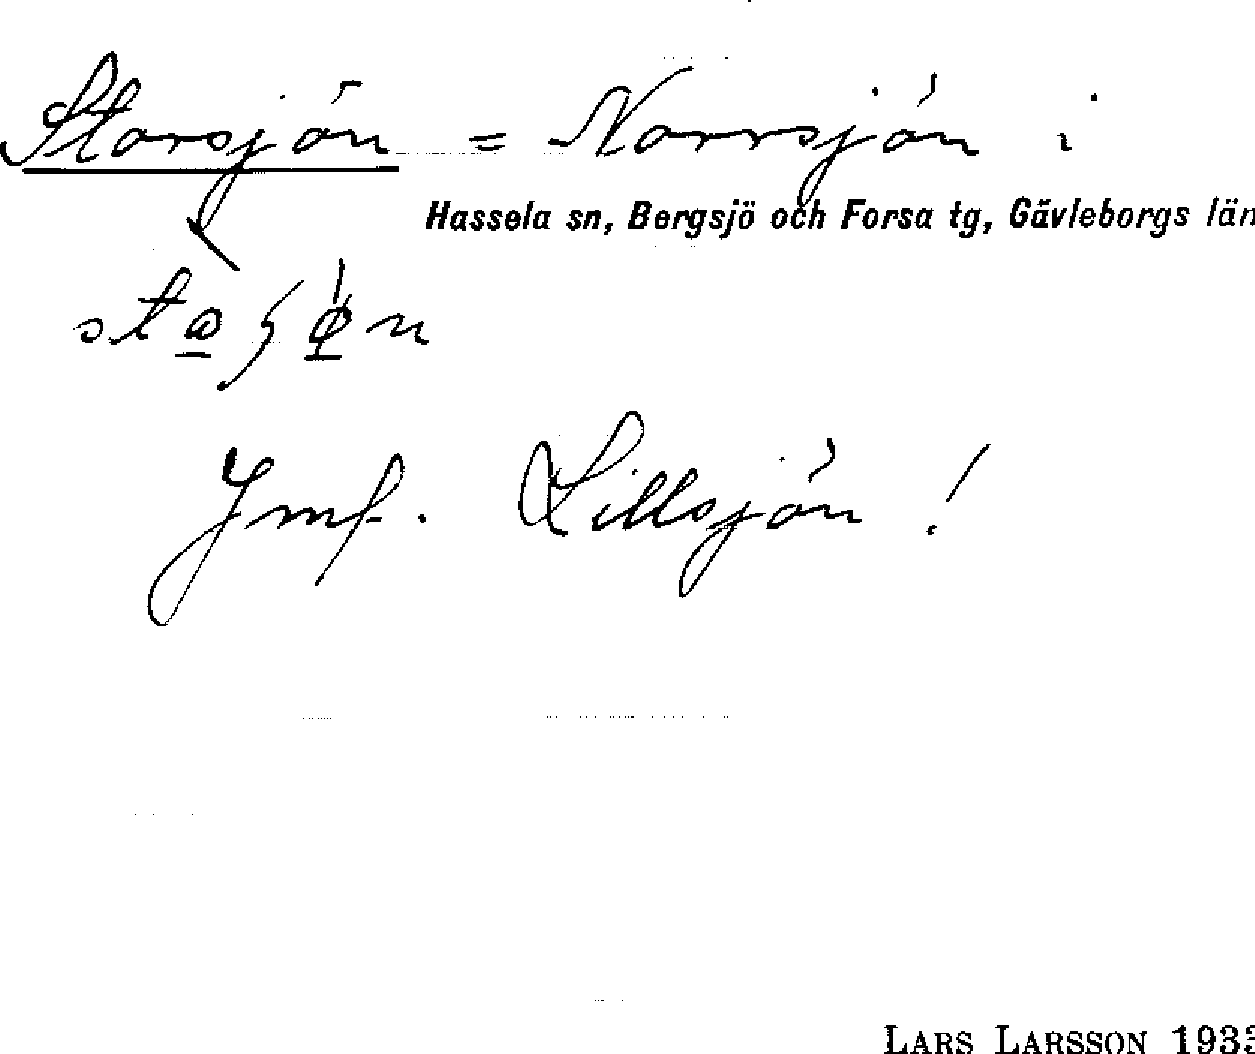 Storsjön = Norrsjön i
Hassela sn, Bergsjö och Forsa tg, Gävleborgs län
Jmf. Lillsjön!
LARS LARSSON 193